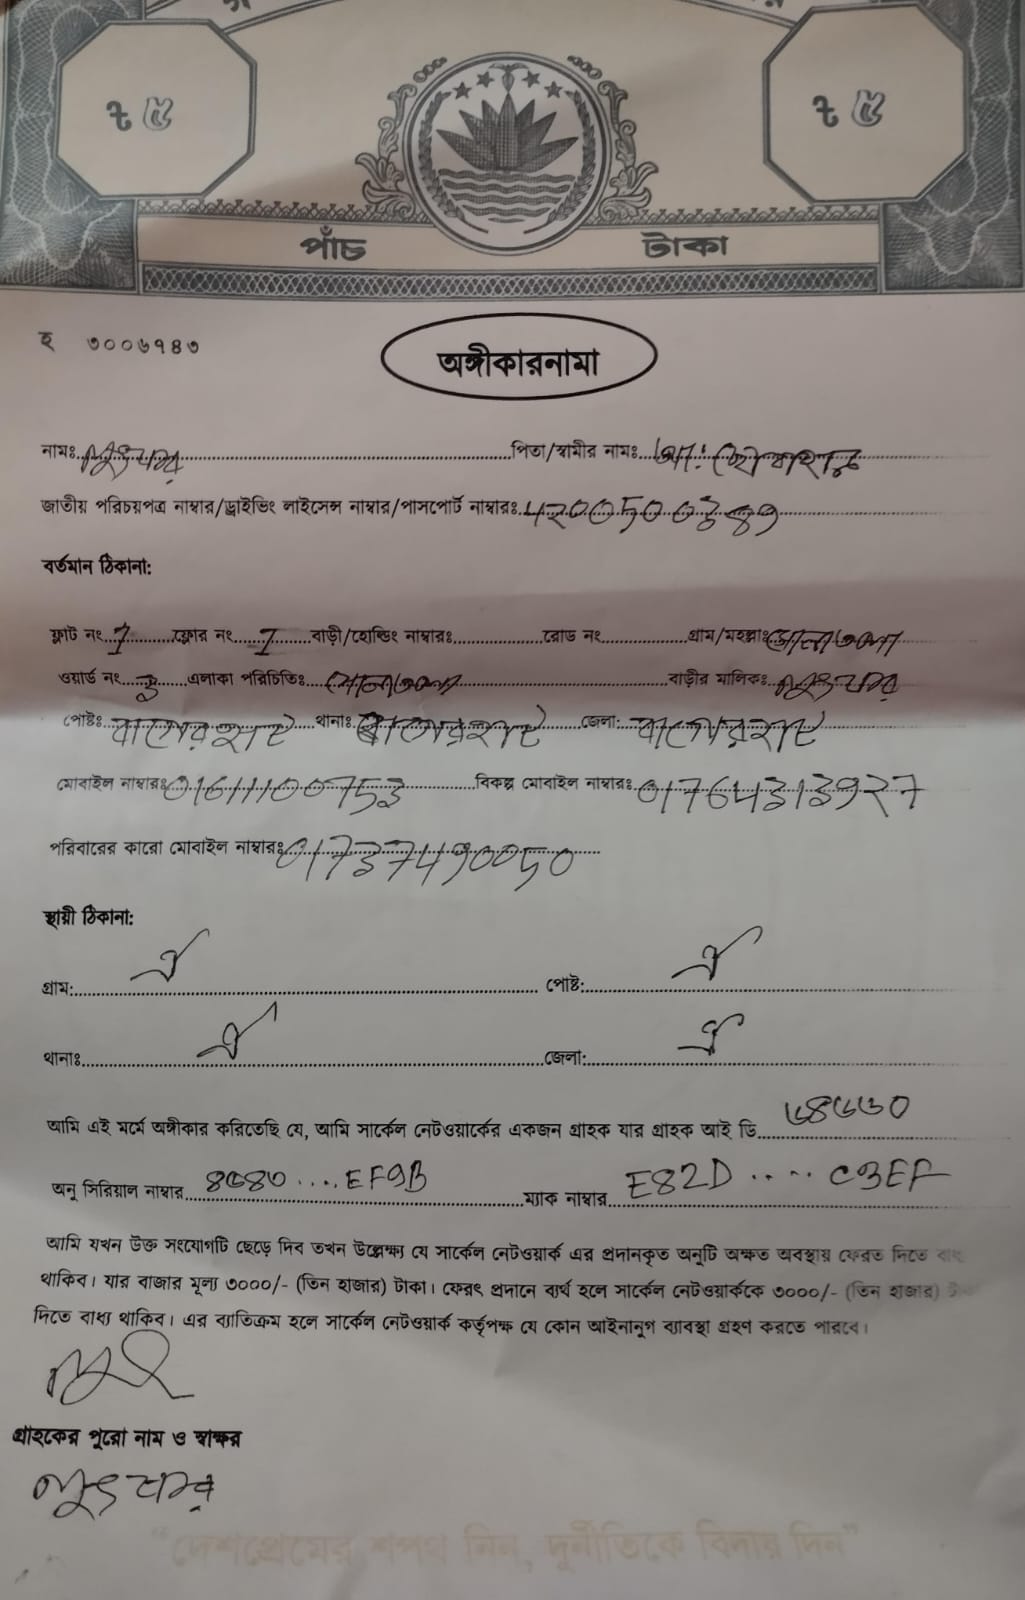 ৳ ৫ ৳ ৫
পাঁচ টাকা
হ ৩০০৬৭৪৩
অঙ্গীকারনামা
নামঃ লুৎফর পিতা/স্বামীর নামঃ আঃ সোবাহান
জাতীয় পরিচয়পত্র নাম্বার/ড্রাইভিং লাইসেন্স নাম্বার/পাসপোর্ট নাম্বারঃ
বর্তমান ঠিকানা:
ফ্লাট নং 1 ফ্লোর নং 1 বাড়ী/হোল্ডিং নাম্বারঃ রোড নং গ্রাম/মহল্লাঃ সোনাতলা
ওয়ার্ড নং 3 এলাকা পরিচিতিঃ সোনাতলা বাড়ীর মালিকঃ লুৎফর
পোষ্টঃ বাগেরহাট থানাঃ বাগেরহাট জেলা: বাগেরহাট
মোবাইল নাম্বারঃ 01611100753 বিকল্প মোবাইল নাম্বারঃ 01764313927
পরিবারের কারো মোবাইল নাম্বারঃ 01737490050
স্থায়ী ঠিকানা:
গ্রাম: ঐ পোষ্ট: ঐ
থানাঃ ঐ জেলা: ঐ
আমি এই মর্মে অঙ্গীকার করিতেছি যে, আমি সার্কেল নেটওয়ার্কের একজন গ্রাহক যার গ্রাহক আই ডি
অনু সিরিয়াল নাম্বার .... EF9B ম্যাক নাম্বার E82D .... C3EF
আমি যখন উক্ত সংযোগটি ছেড়ে দিব তখন উল্লেক্ষ্য যে সার্কেল নেটওয়ার্ক এর প্রদানকৃত অনুটি অক্ষত অবস্থায় ফেরত দিতে বাধ্য
থাকিব। যার বাজার মূল্য ৩০০০/- (তিন হাজার) টাকা। ফেরৎ প্রদানে ব্যর্থ হলে সার্কেল নেটওয়ার্ককে ৩০০০/- (তিন হাজার)
দিতে বাধ্য থাকিব। এর ব্যাতিক্রম হলে সার্কেল নেটওয়ার্ক কর্তৃপক্ষ যে কোন আইনানুগ ব্যবস্থা গ্রহণ করতে পারবে।
গ্রাহকের পুরো নাম ও স্বাক্ষর
লুৎফর
"দেশপ্রেমের শপথ নিন, দুর্নীতিকে বিদায় দিন"